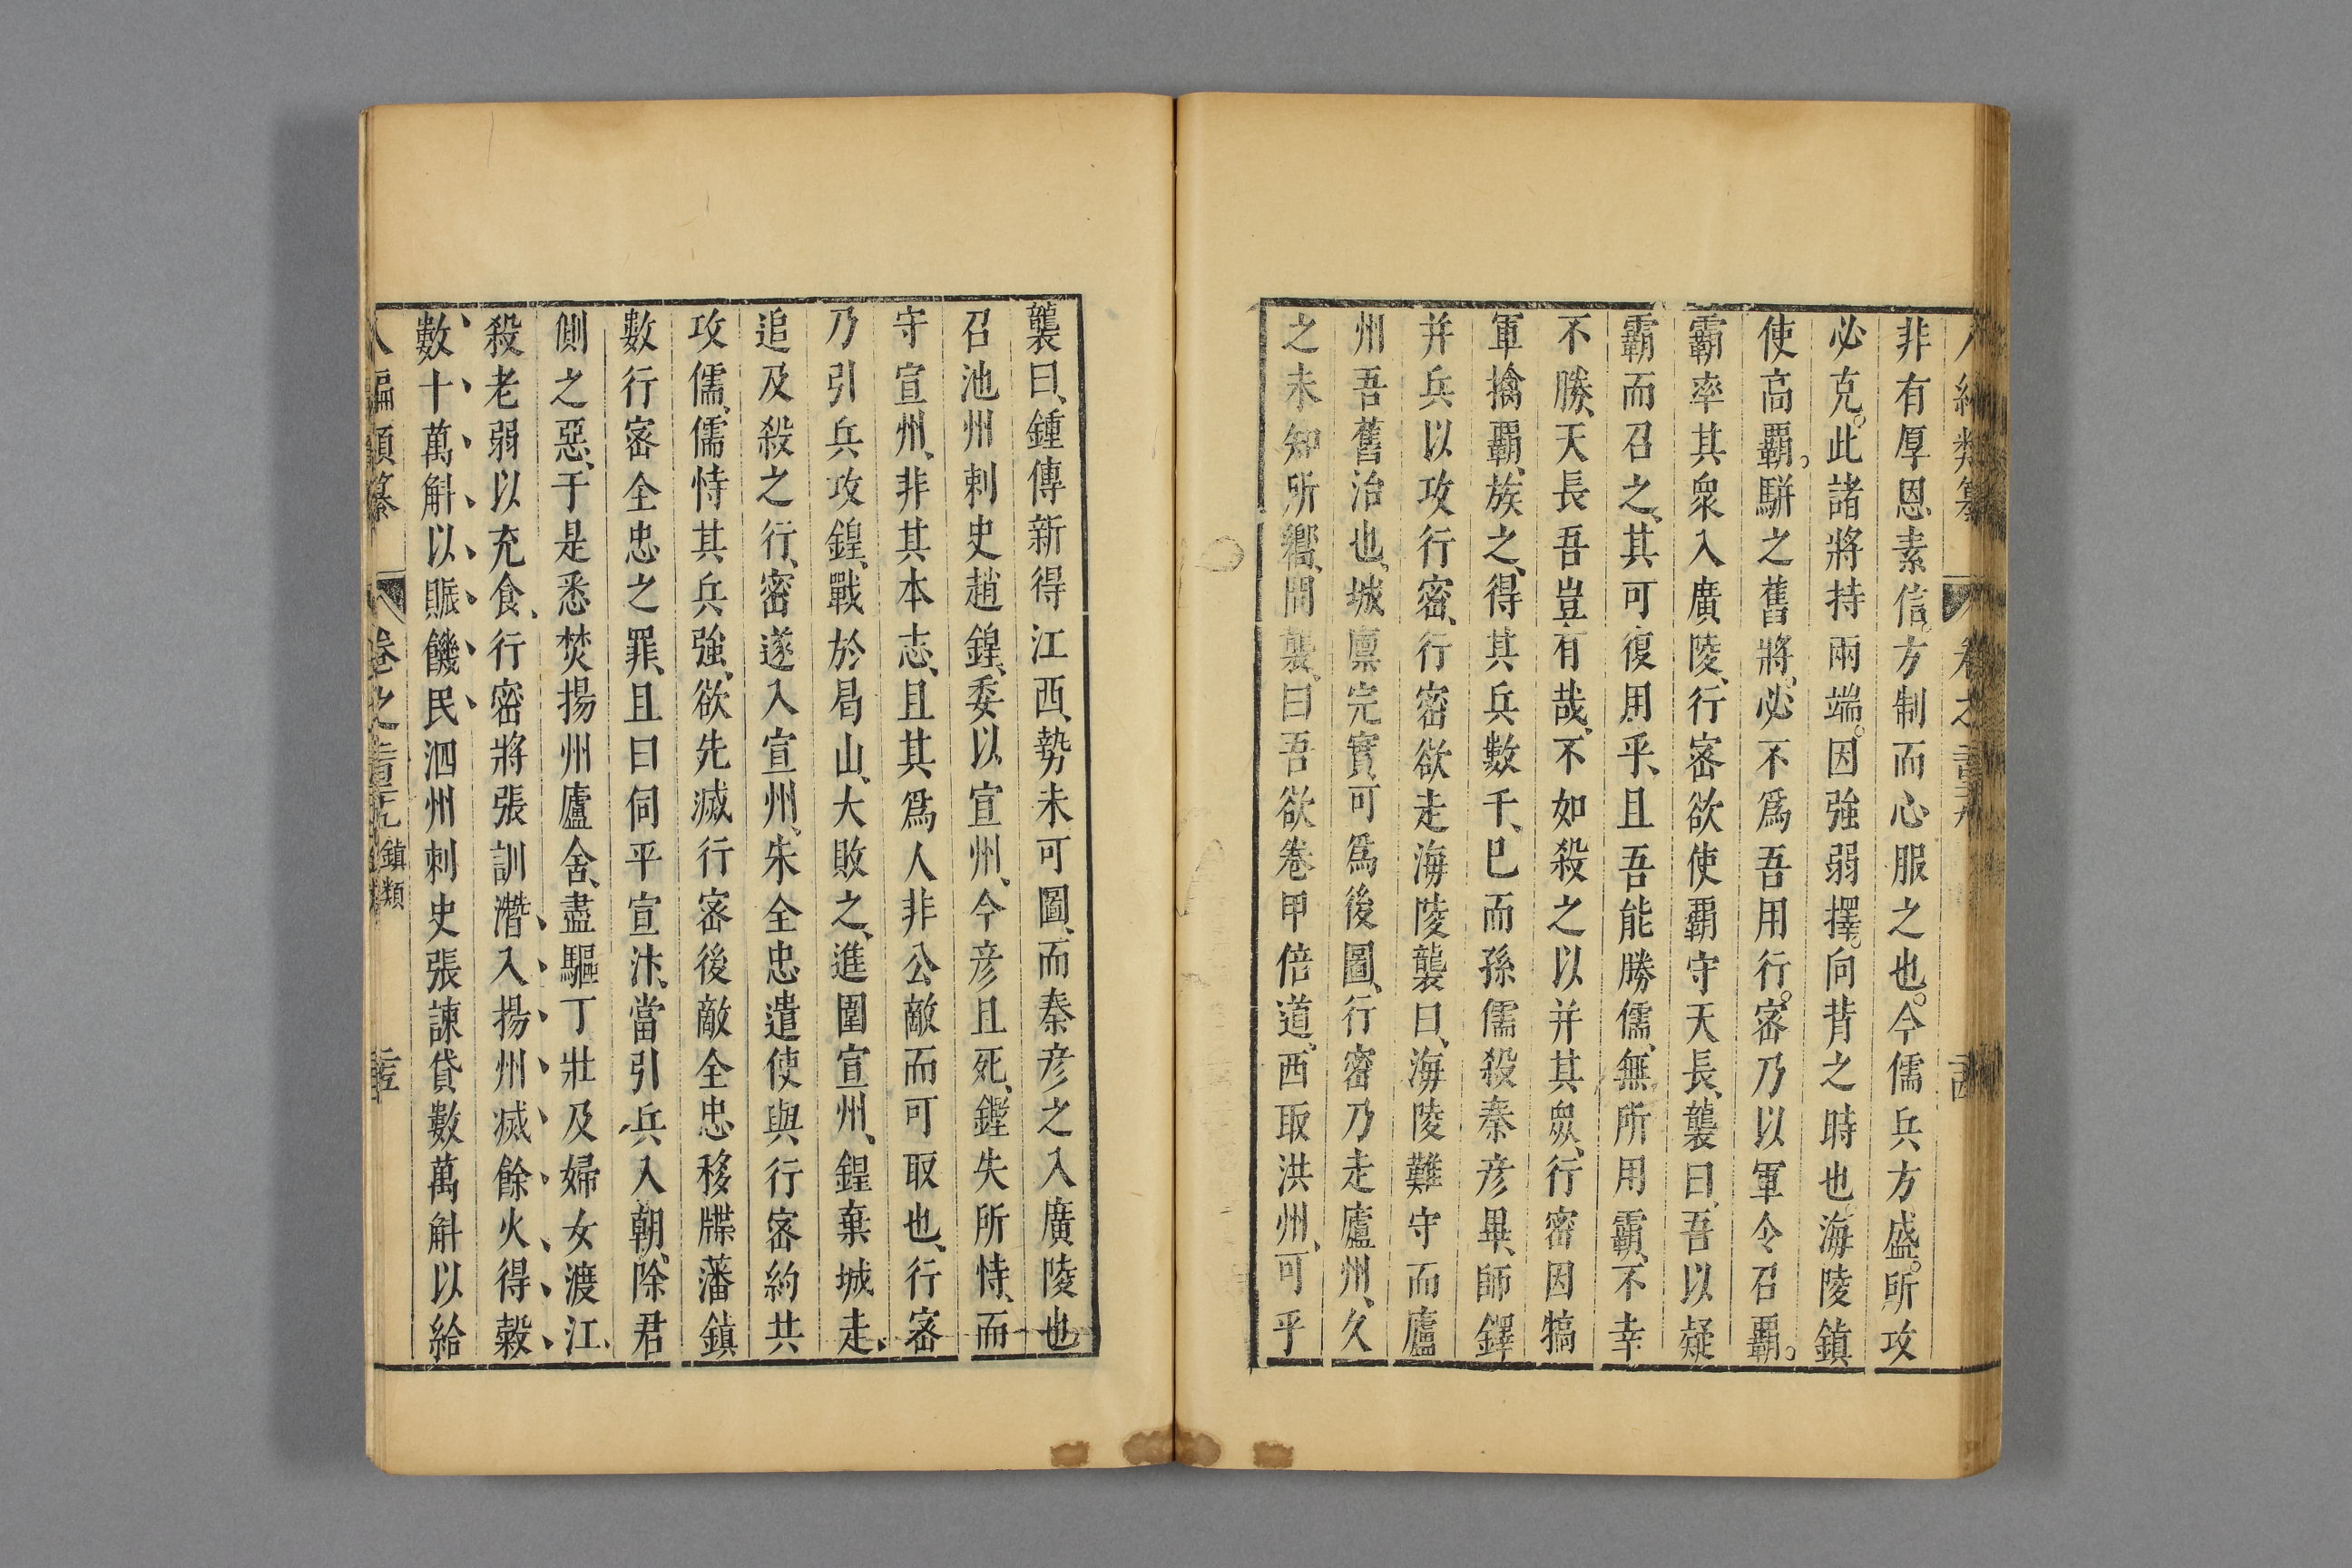 非有厚恩素信。方制而心服之也。今儒兵方盛。所攻
必克。此諸將持兩端。因強弱擇。向背之時也。海陵鎮
使高霸。駢之舊將。必不爲吾用行。密乃以軍令召霸。
霸率其衆入廣陵、行密欲使霸守天長、襲曰、吾以疑
霸而召之、其可復用乎、且吾能勝儒、無所用霸、不幸
不勝、天長吾豈有哉、不如殺之以并其衆、行密因犒
軍擒霸、族之、得其兵數千、巳而孫儒殺秦彦畢、師鐸
并兵以攻行密、行密欲走海陵襲曰、海陵難守而廬
州吾舊治也、城廩完實、可爲後圖、行密乃走廬州、久
之未知所嚮、問襲、曰吾欲卷甲倍道、西取洪州、可乎
襲曰、鍾傳新得江西、勢未可圖、而秦彦之入廣陵也、
召池州刺史趙鍠、委以宣州、今彦且死、鍠失所恃、而
守宣州、非其本志、且其爲人非公敵而可取也、行密
乃引兵攻鍠、戰於曷山、大敗之、進圍宣州、鍠棄城走、
追及殺之行、密遂入宣州、朱全忠遣使與行密約共
攻儒、儒恃其兵強、欲先滅行密後敵全忠移牒藩鎮
數行密全忠之罪、且曰伺平宣汴、當引兵入朝、除君
側之惡、于是悉焚揚州廬舍、盡驅丁壯及婦女渡江、
殺老弱以充食、行密將張訓潛入揚州滅餘火得穀
數十萬斛以賑饑民泗州刺史張諫貸數萬斛以給
卷之 鎮類